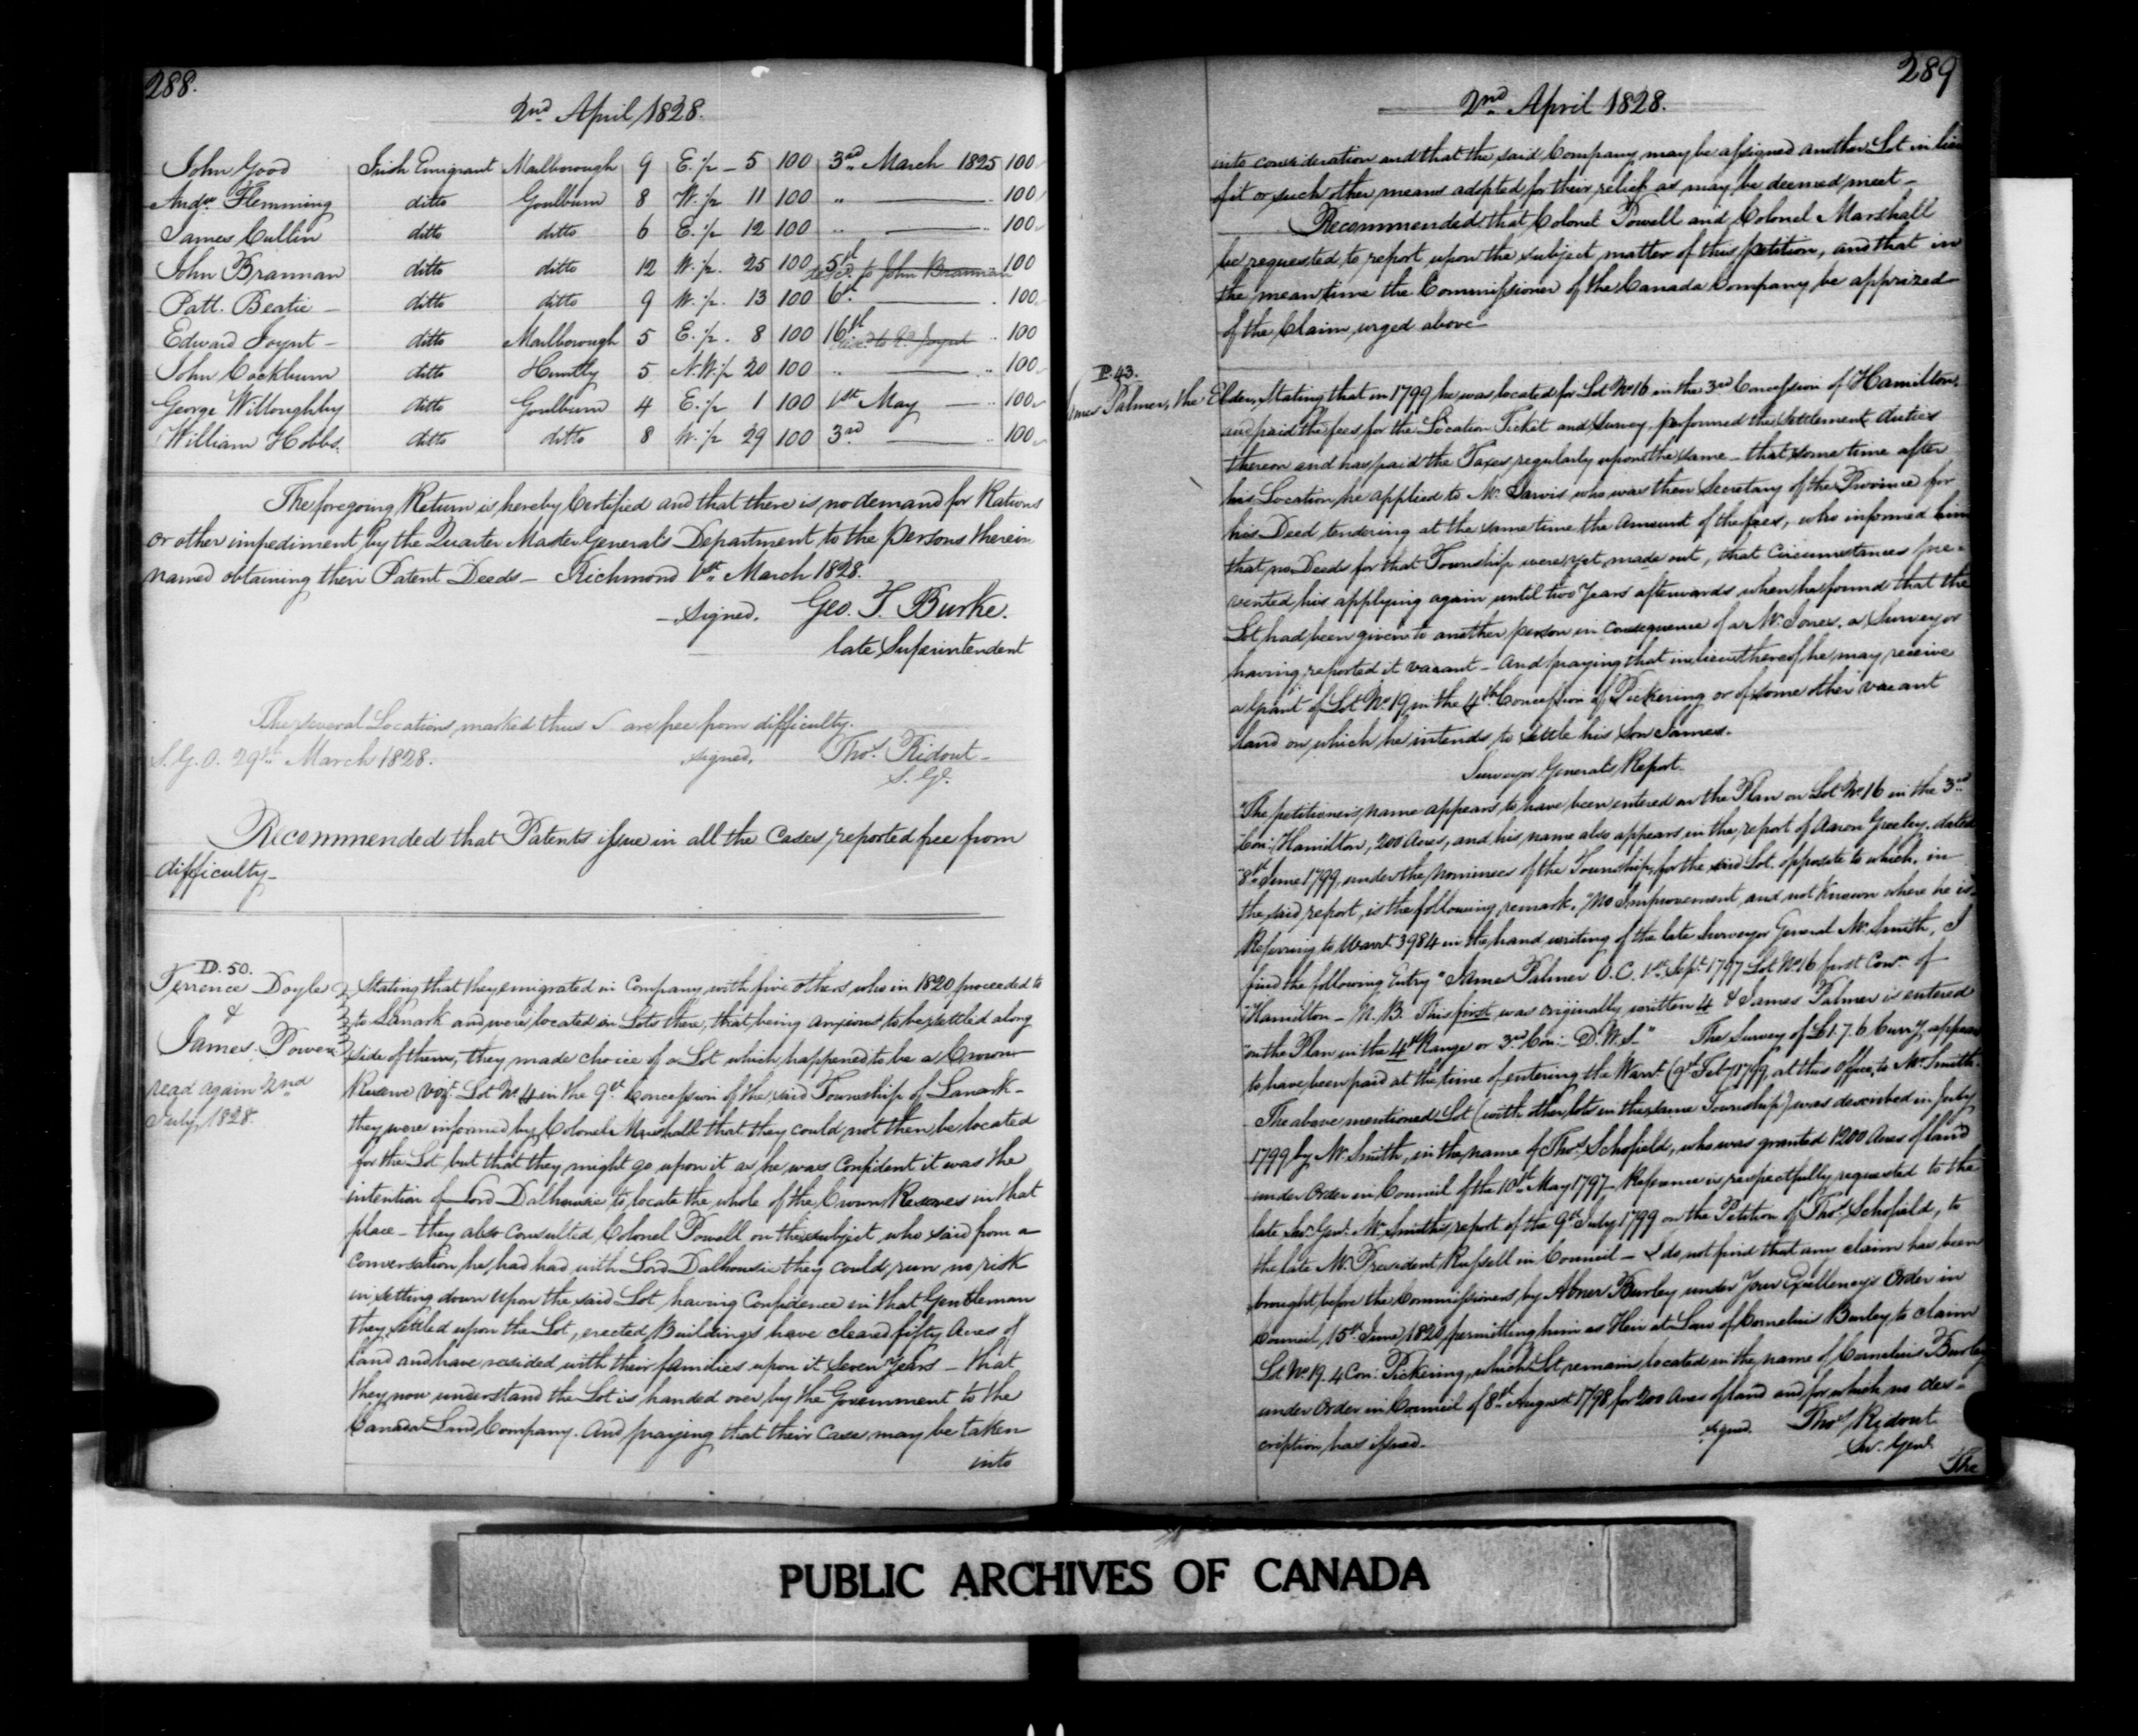 288.
2nd April 1828.
John Good Irish Emigrant Marlborough 9 E. ½ 5 100 3rd March 1825 100
Andw Flemming ditto Goulburn 8 W. ½ 11 100 " 100
James Cullin ditto ditto 6 E. ½ 12 100 " 100
John Brannan ditto ditto 12 W. ½ 25 100 5th to John Brannan 100
Patt. Beatie ditto ditto 9 W. ½ 13 100 6th 100
Edward Joynt ditto Marlborough 5 E. ½ 8 100 16th to E. Joynt 100
John Cockburn ditto Huntly 5 N.W. ½ 20 100 " 100
George Willoughby ditto Goulburn 4 E. ½ 1 100 1st May 100
William Hobbs ditto ditto 8 W. ½ 29 100 3rd 100
The foregoing Return is hereby Certified and that there is no demand for Rations
or other impediment by the Quarter Master General's Department to the persons therein
named obtaining their Patent Deeds — Richmond 1st March 1828.
signed. Geo. T. Burke.
late Superintendent
The several Locations marked thus √ are free from difficulty.
S. G. O. 29th March 1828. signed, Thos Ridout
S. Gl.
Recommended that Patents issue in all the Cases reported free from
difficulty —
D. 50.
Terrence Doyle
&
James Power
read again 2nd
July 1828.
Stating that they emigrated in Company with five others who in 1820 proceeded to
to Lanark and were located on Lots there, that being anxious to be settled along
side of them, they made choice of a Lot which happened to be a Crown
Reserve vizt Lot No 4 in the 9th Concession of the said Township of Lanark —
they were informed by Colonel Marshall that they could not then be located
for the Lot but that they might go upon it as he was Confident it was the
intention of Lord Dalhousie to locate the whole of the Crown Reserves in that
place — they also consulted Colonel Powell on the subject, who said from a
Conversation he had had with Lord Dalhousie they could run no risk
in setting down upon the said Lot having Confidence in that Gentleman
they settled upon the Lot, erected Buildings have cleared fifty Acres of
land and have resided with their families upon it seven Years — that
they now understand the Lot is handed over by the Government to the
Canada Land Company. And praying that their Case may be taken
into
289
2nd April 1828.
into consideration and that the said Company may be assigned another Lot in lieu
of it or such other means adopted for their relief as may be deemed meet —
Recommended that Colonel Powell and Colonel Marshall
be requested to report upon the subject matter of this petition, and that in
the mean time the Commissioner of the Canada Company be apprized
of the Claim urged above —
P. 43.
James Palmer, the Elder, Stating that in 1799 he was located for Lot No 16 in the 3rd Concession of Hamilton,
and paid the fees for the Location Ticket and Survey performed the Settlement duties
thereon and has paid the Taxes regularly upon the same — that some time after
his Location he applied to Mr Jarvis who was then Secretary of the Province for
his Deed tendering at the same time the Amount of the fees, who informed him
that no Deeds for that Township were yet made out, that Circumstances pre-
vented his applying again until two Years afterwards when he found that the
Lot had been given to another person in Consequence of a Mr Jones, a Surveyor
having reported it vacant — And praying that in lieu thereof he may receive
a Grant of Lot No 19 in the 4th Concession of Pickering or of some other vacant
land on which he intends to settle his Son James.
Surveyor General's Report
"The petitioner's name appears to have been entered on the Plan on Lot No 16 in the 3rd
"Con: Hamilton, 200 Acres, and his name also appears in the report of Aaron Greeley, dated
"8th June 1799, under the Nominees of the Township, for the said Lot, opposite to which, in
the said report, is the following remark, "No Improvement, and not known where he is"
Referring to Warrt 3984 in the hand writing of the late Surveyor General Mr Smith, I
find the following Entry "James Palmer O. C. 1st Sept 1797 Lot No 16 first Conn of
"Hamilton — N. B. This first was originally written 4 & James Palmer is entered
"on the Plan in the 4th Range or 3rd Con: D. W. S." The Survey of £1.7.6 Curry appears
to have been paid at the time of entering the Warrt (9th Feby 1799) at this Office, to Mr Smith.
The above mentioned Lot (with other lots in the same Township) was described in July
1799 by Mr Smith, in the name of Thos Schofield, who was granted 1200 Acres of land
under Order in Council of the 10th May 1797 — Reference is respectfully requested to the
late Surr Genl Mr Smith's report of the 9th July 1799 on the Petition of Thos Schofield, to
the late Mr President Russell in Council — I do not find that any claim has been
brought before the Commissioners by Abner Burley under Your Excellency's Order in
Council, 15th June 1820, permitting him as Heir at Law of Cornelius Burley, to claim
Lot No 19. 4 Con: Pickering, which Lot remains located in the name of Cornelius Burley
under Order in Council of 8th August 1798 for 200 Acres of land and for which no des-
cription has issued.
signed. Thos Ridout
Sur. Genl
The
PUBLIC ARCHIVES OF CANADA